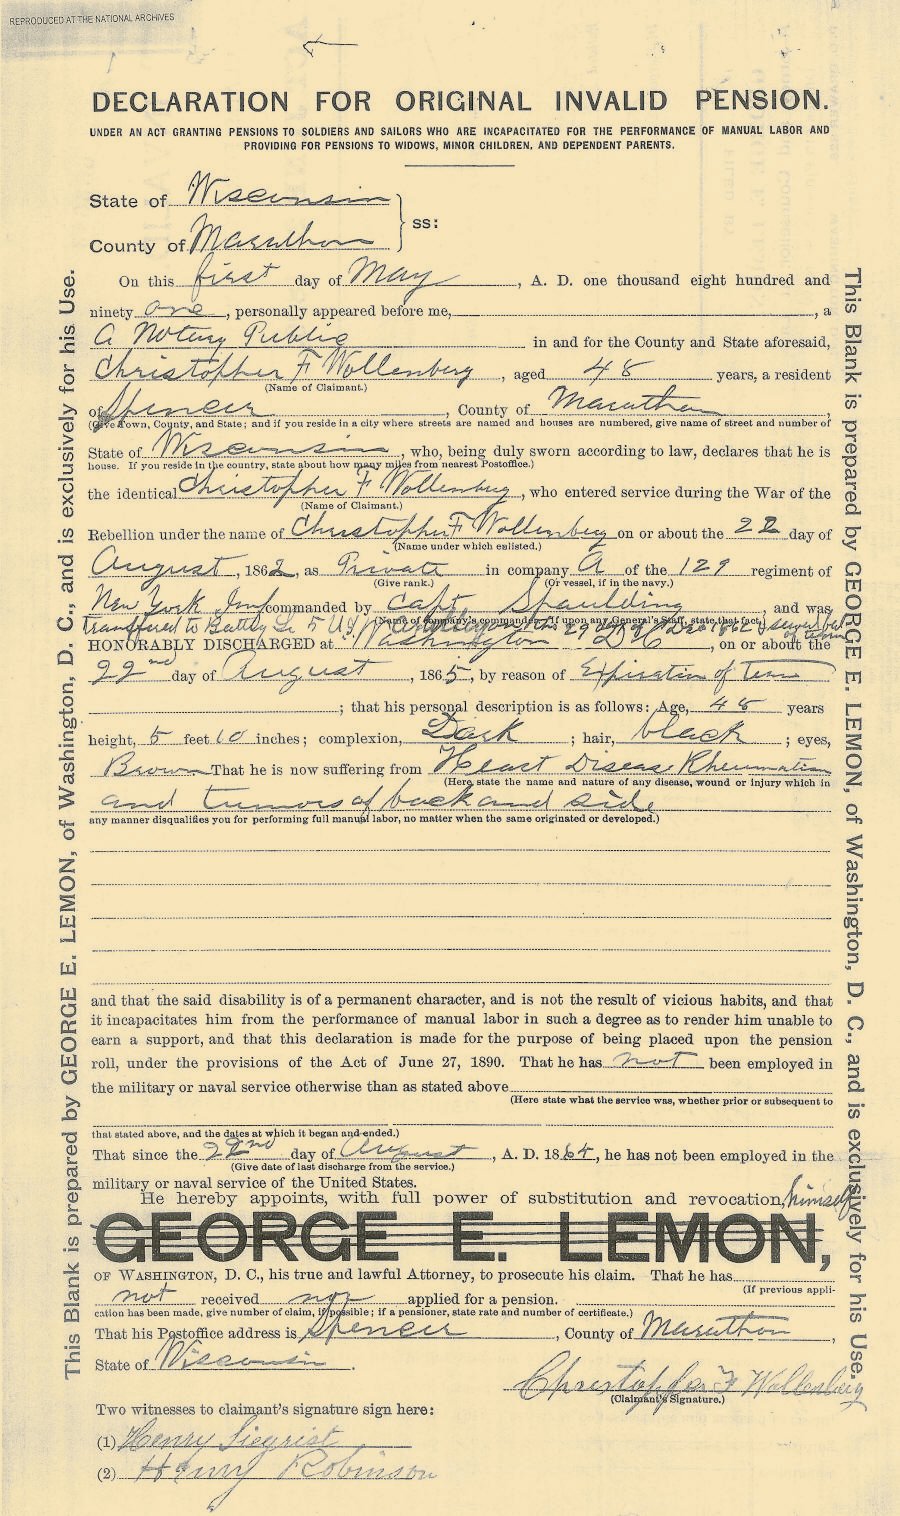 REPRODUCED AT THE NATIONAL ARCHIVES
DECLARATION FOR ORIGINAL INVALID PENSION.
UNDER AN ACT GRANTING PENSIONS TO SOLDIERS AND SAILORS WHO ARE INCAPACITATED FOR THE PERFORMANCE OF MANUAL LABOR AND
PROVIDING FOR PENSIONS TO WIDOWS, MINOR CHILDREN, AND DEPENDENT PARENTS.
State of Wisconsin
ss:
County of Marathon
On this first day of May, A. D. one thousand eight hundred and
ninety one, personally appeared before me, , a
A Notary Public in and for the County and State aforesaid,
Christopher F Wollenberg, aged 48 years, a resident
(Name of Claimant.)
of Spencer, County of Marathon,
(Give Town, County, and State; and if you reside in a city where streets are named and houses are numbered, give name of street and number of
State of Wisconsin, who, being duly sworn according to law, declares that he is
house. If you reside in the country, state about how many miles from nearest Postoffice.)
the identical Christopher F Wollenberg, who entered service during the War of the
(Name of Claimant.)
Rebellion under the name of Christopher F Wollenberg on or about the 22 day of
(Name under which enlisted.)
August, 1862, as Private in company A of the 129 regiment of
(Give rank.) (Or vessel, if in the navy.)
New York Inf commanded by Capt Spaulding, and was
(Name of company's commander; if upon any General's Staff, state that fact.)
transffered to Batty L 5 U.S. 29 Dec 1862 & served bal of term
HONORABLY DISCHARGED at Washington D C, on or about the
22nd day of August, 1865, by reason of Expiration of Term
; that his personal description is as follows: Age, 48 years
height, 5 feet 10 inches; complexion, Dark; hair, black; eyes,
Brown That he is now suffering from Heart Disease Rheumatism
(Here state the name and nature of any disease, wound or injury which in
and tumors of back and side
any manner disqualifies you for performing full manual labor, no matter when the same originated or developed.)
and that the said disability is of a permanent character, and is not the result of vicious habits, and that
it incapacitates him from the performance of manual labor in such a degree as to render him unable to
earn a support, and that this declaration is made for the purpose of being placed upon the pension
roll, under the provisions of the Act of June 27, 1890. That he has not been employed in
the military or naval service otherwise than as stated above
(Here state what the service was, whether prior or subsequent to
that stated above, and the dates at which it began and ended.)
That since the 22nd day of August, A. D. 1864, he has not been employed in the
(Give date of last discharge from the service.)
military or naval service of the United States.
He hereby appoints, with full power of substitution and revocation, himself
GEORGE E. LEMON,
OF WASHINGTON, D. C., his true and lawful Attorney, to prosecute his claim. That he has
(If previous appli-
not received nor applied for a pension.
cation has been made, give number of claim, if possible; if a pensioner, state rate and number of certificate.)
That his Postoffice address is Spencer, County of Marathon,
State of Wisconsin.
Christopher F Wollenberg
(Claimant's Signature.)
Two witnesses to claimant's signature sign here:
(1) Henry Siegrist
(2) Henry Robinson
This Blank is prepared by GEORGE E. LEMON, of Washington, D. C., and is exclusively for his Use.
This Blank is prepared by GEORGE E. LEMON, of Washington, D. C., and is exclusively for his Use.